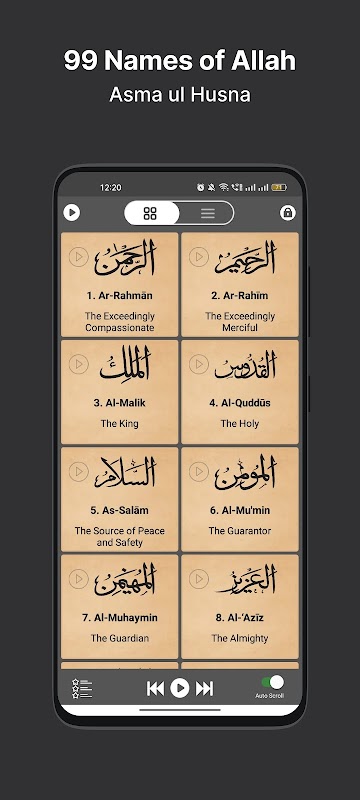 99 Names of Allah
Asma ul Husna
12:20
71
الرَّحْمَٰنُ
1. Ar-Rahmān
The Exceedingly
Compassionate
الرَّحِيمُ
2. Ar-Rahīm
The Exceedingly
Merciful
المَلِكُ
3. Al-Malik
The King
القُدُّوسُ
4. Al-Quddūs
The Holy
السَّلَامُ
5. As-Salām
The Source of Peace
and Safety
المُؤْمِنُ
6. Al-Mu'min
The Guarantor
المُهَيْمِنُ
7. Al-Muhaymin
The Guardian
العَزِيزُ
8. Al-‘Azīz
The Almighty
Auto Scroll